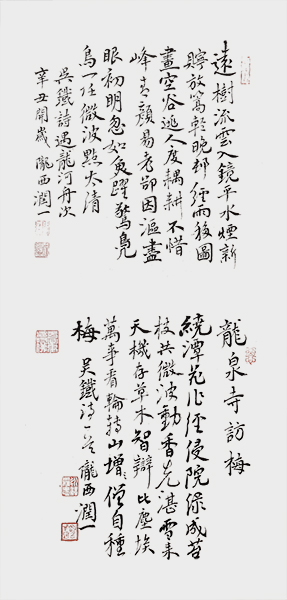 遠樹流雲入鏡平水煙新
放篙 晚邨經雨 圖
畫空谷逃人度耦耕不惜
峰青顏易老卻因漚盡
眼初明忽如魚躍驚鳧
鳥一任微波點太清
吳鐵詩遇龍河舟次
辛丑開歲隴西潤一
龍泉寺訪梅
繞潭花作徑侵院綠成苔
枝共微波動香先湛雪來
天機存草木智辯比塵埃
萬事看輪轉山增僧自種
梅 吳鐵詩一首隴西潤一